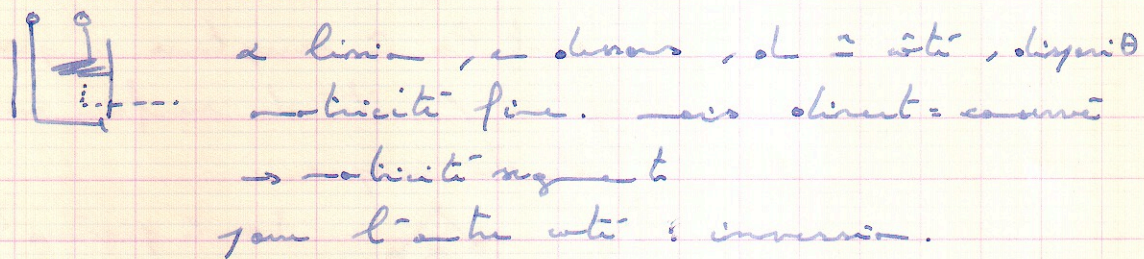 α lésion, en dessous, du = côté, disparitθ
motricité fine. mais direct = conservé
→ motricité segment
pour l'autre côté : inversion.